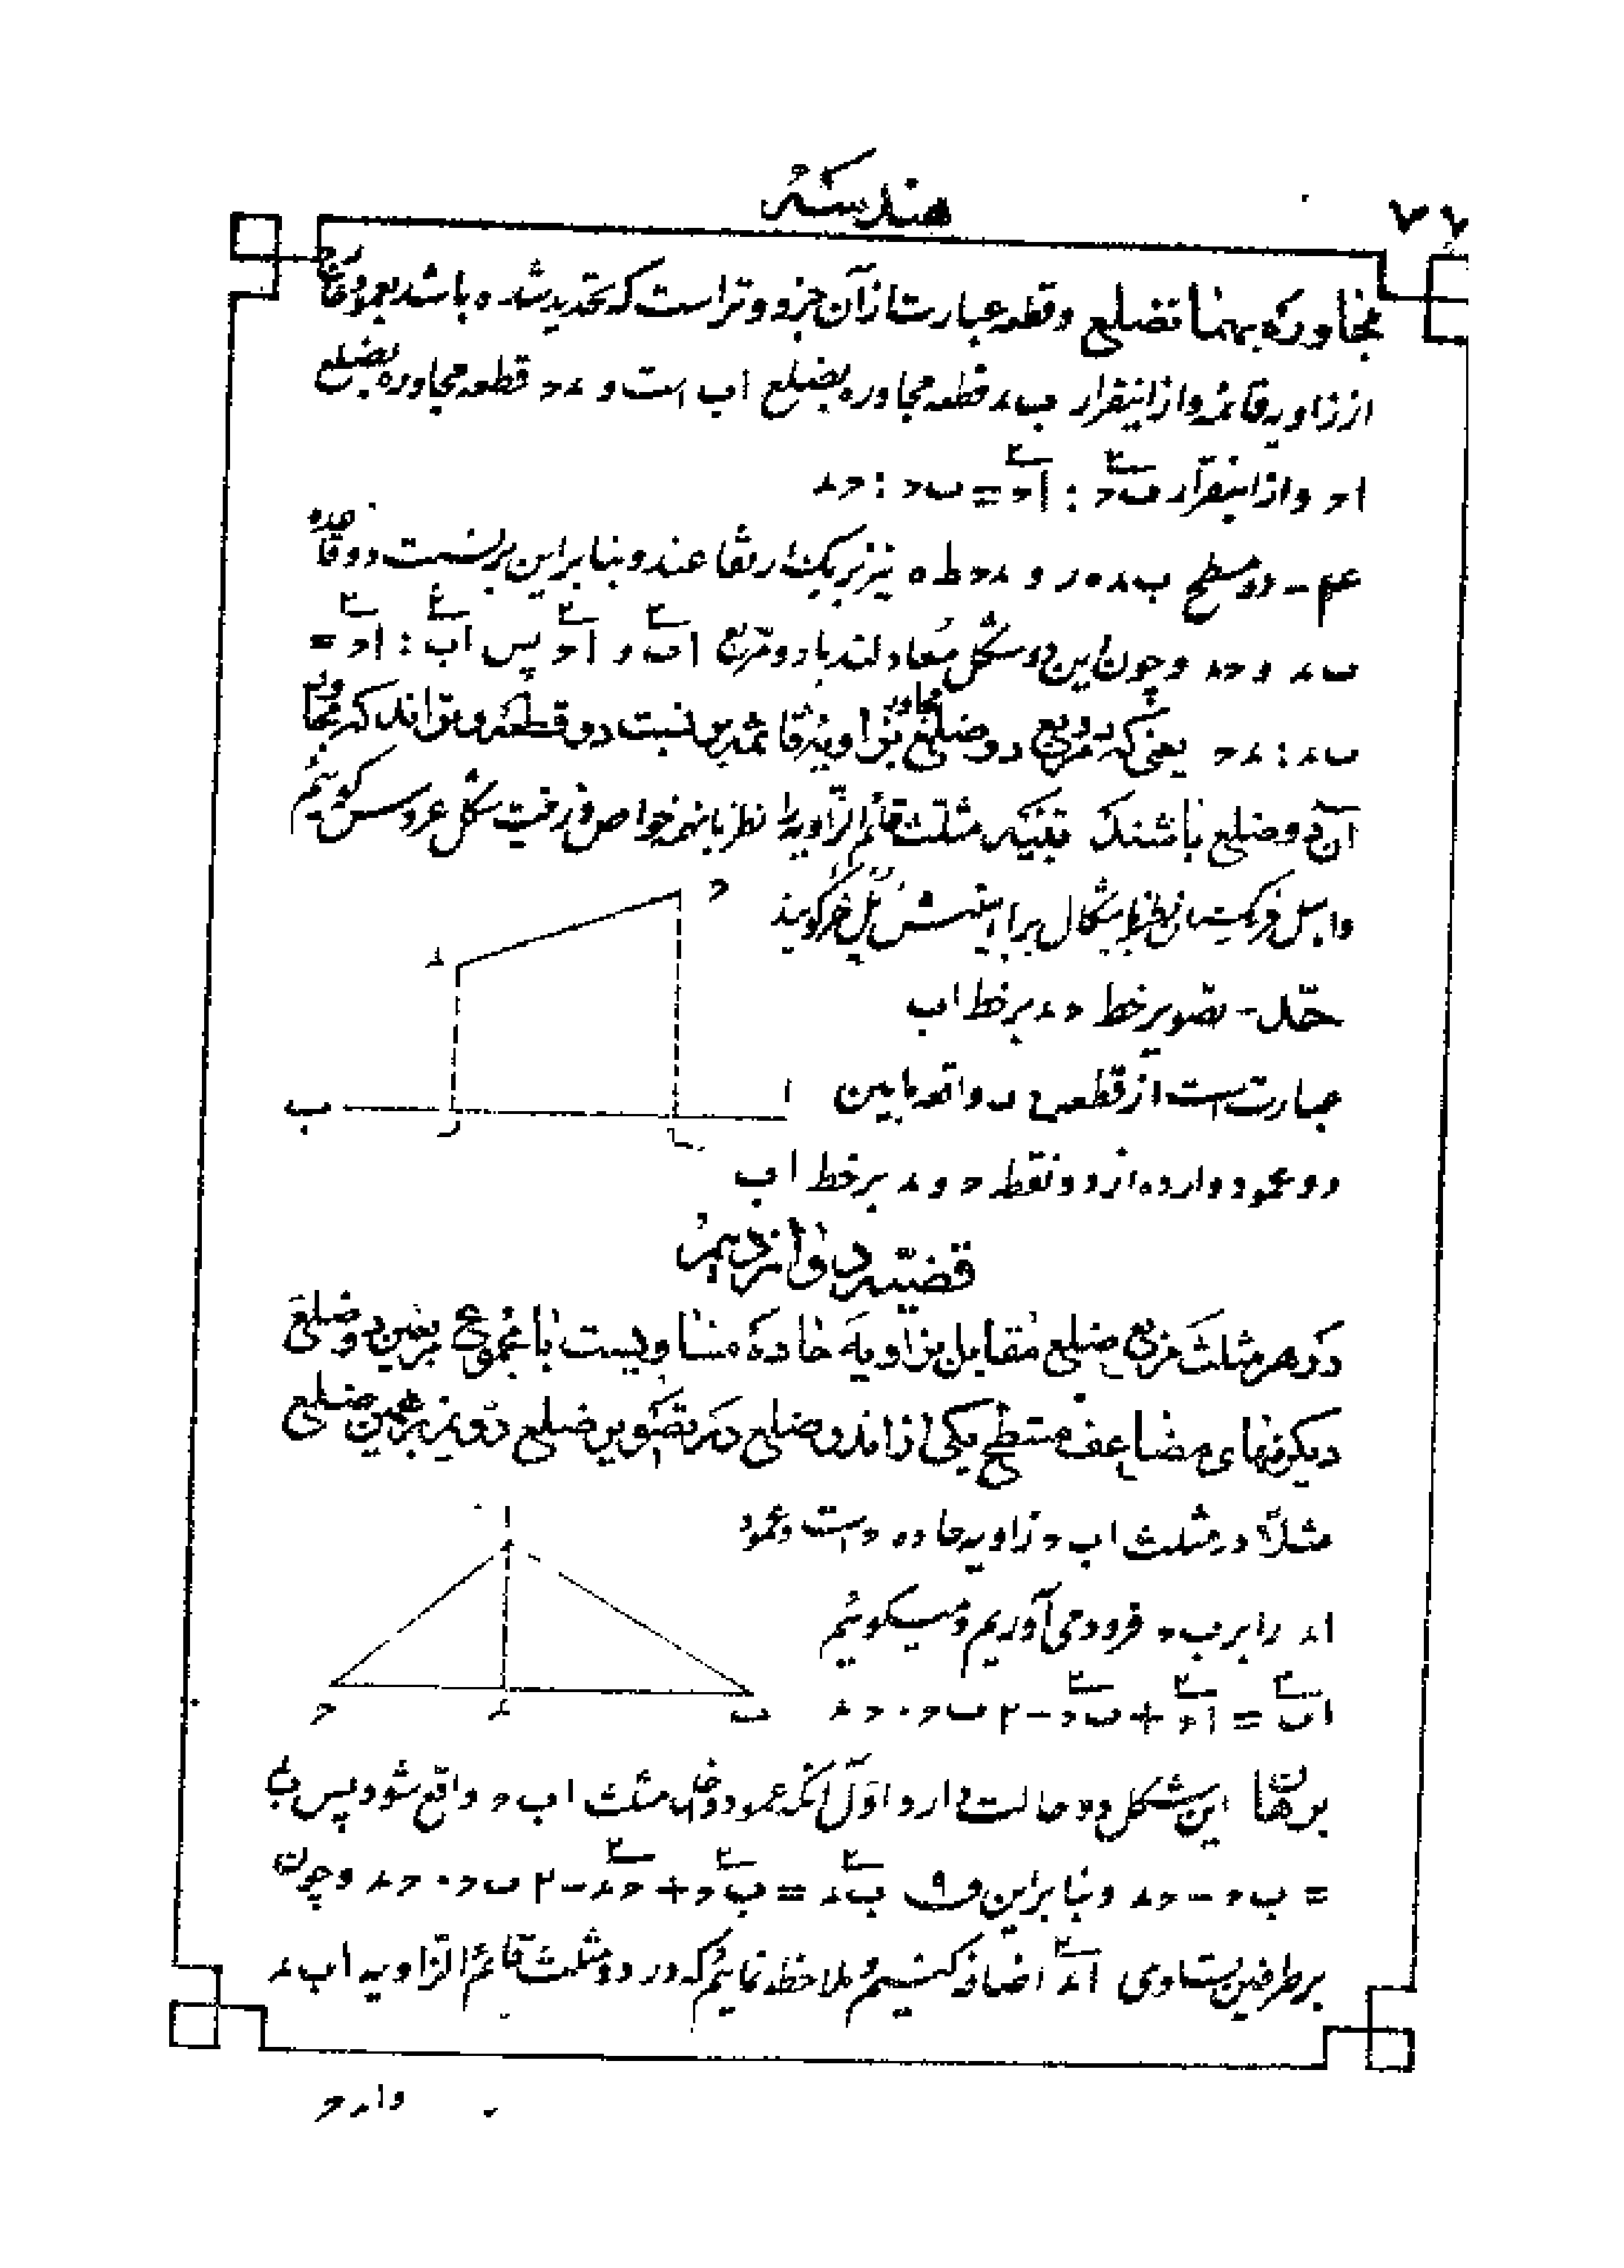 هندسه
۷۶
مجاوره بهمان ضلع و قطعه عبارت از آن جزو وتر است که تحدید شده باشد بعمود خارج
از زاویه قائمه و از اینقرار ب‍ء قطعه مجاوره بضلع اب است و ءح قطعه مجاوره بضلع
اح و از اینقرار بح۲ : اح۲ = بح : حء
۴م - دو سطح بءه‌ر و ءحطه نیز بر یک ارتفاعند و بنابراین بر نسبت دو قاعده
بء و حء و چون این دو شکل معادلند با دو مربع اب۲ و اح۲ پس اب۲ : اح۲ =
بء : ءح یعنی که دو مربع دو ضلع مجاور بزاویه قائمه بر نسبت دو قطعه وتراند که مجاور
آن دو ضلع باشند تنبیه مثلث قائم الزاویه را نظر باینهمه خواص و زینت شکل عروس گوئیم
و اهل فرنگستان نظر باشکال برابریش پل خر گویند
حل - تصویر خط حء بر خط اب
عبارت است از قطعه واقعه مابین
دو عمود وارده از دو نقطه ح و ء بر خط اب
ح
ء
ا
ب
ر
قضیه دوازدهم
در هر مثلث مربع ضلع مقابل بزاویه حاده مساویست با مجموع مربعین دو ضلع
دیگر منهای مضاعف مسطح یکی از اندو ضلع در تصویر ضلع دویم بر همین ضلع
مثلاً در مثلث ابح زاویه حاده ح است و عمود
اء را بر بح فرود می‌آوریم و میگوئیم
اب۲ = اح۲ + بح۲ - ۲ بح . حء
ا
ح
ء
ب
برهان این شکل دو حالت دارد اول آنکه عمود داخل مثلث ابح واقع شود پس بء
= بح - حء و بنابراین ق ۹ بء۲ = بح۲ + حء۲ - ۲ بح . حء و چون
بر طرفین تساوی اء۲ اضافه کنیم و ملاحظه نمائیم که در دو مثلث قائم الزاویه ابء
واءح